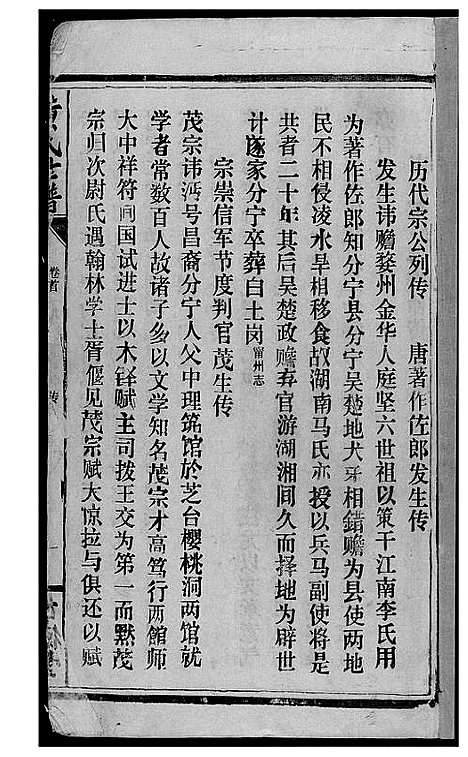 历代宗公列传 唐著作佐郎发生传
发生讳赡婺州金华人庭坚六世祖以策干江南李氏用
为著作佐郎知分宁县分宁吴楚地犬牙相错赡为县使两地
民不相侵凌水旱相移食故湖南马氏亦授以兵马副使将是
共者二十年其后吴楚政赡弃官游湖湘间久而择地为辟世
计遂家分宁卒葬白土岗宁州志
宗崇信军节度判官茂生传
茂宗讳号昌裔分宁人父中理筑馆於芝台樱桃洞两馆就
学者常数百人故诸子多以文学知名茂宗才高笃行两馆师
大中祥符间国试进士以木铎赋主司拨王交为第一而黙茂
宗归次尉氏遇翰林学士胥偃见茂宗赋大惊拉与俱还以赋
黄氏世谱
卷首
传